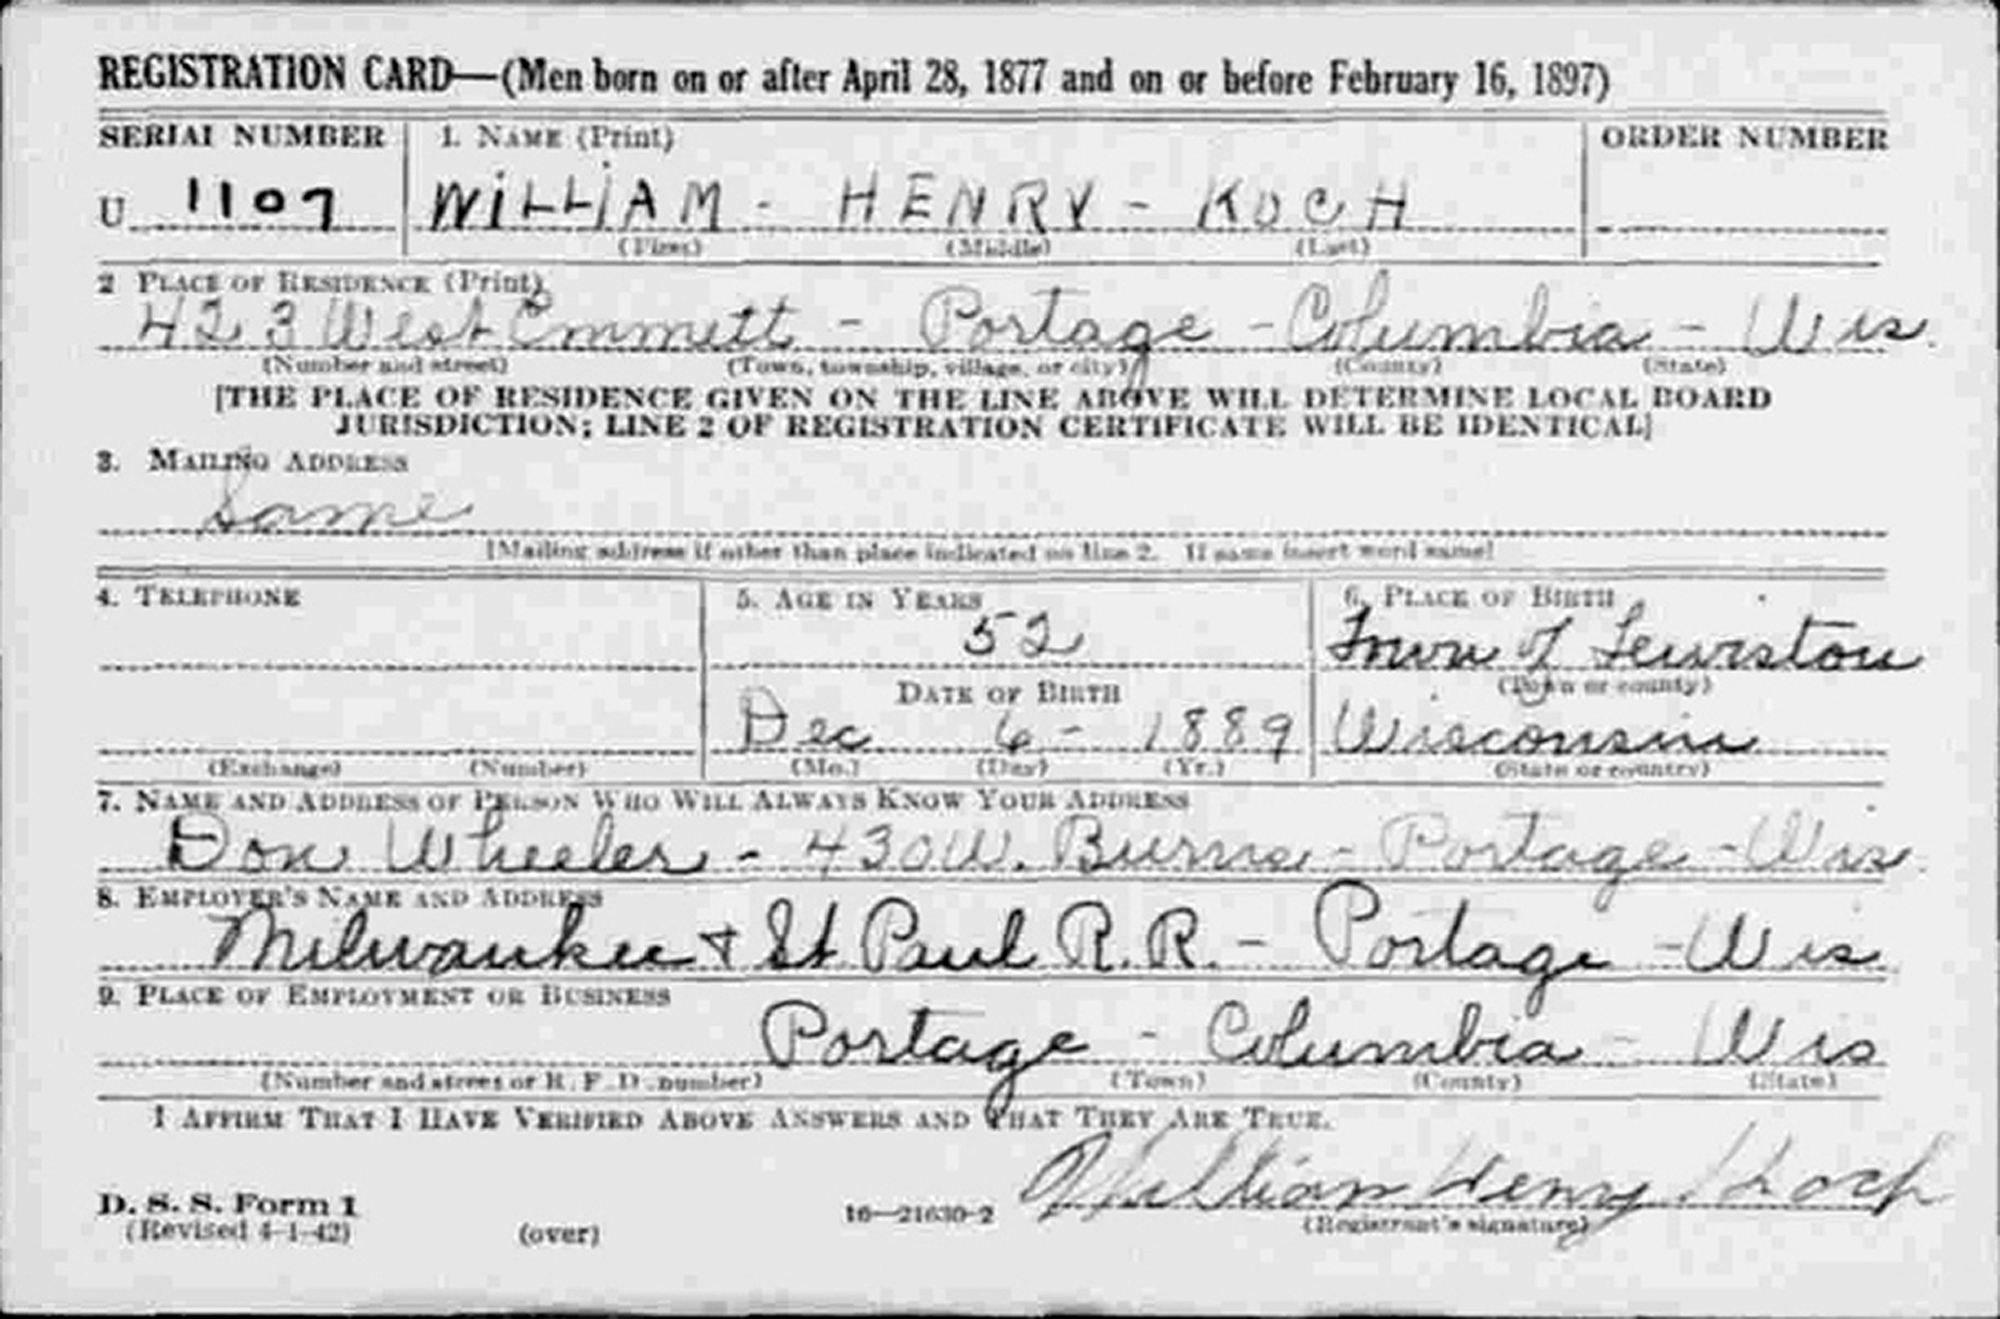 REGISTRATION CARD—(Men born on or after April 28, 1877 and on or before February 16, 1897)
SERIAL NUMBER 1. NAME (Print) ORDER NUMBER
U 1107 WILLIAM - HENRY - KOCH
(First) (Middle) (Last)
2 PLACE OF RESIDENCE (Print)
423 West Emmett - Portage - Columbia - Wis.
(Number and street) (Town, township, village, or city) (County) (State)
[THE PLACE OF RESIDENCE GIVEN ON THE LINE ABOVE WILL DETERMINE LOCAL BOARD
JURISDICTION; LINE 2 OF REGISTRATION CERTIFICATE WILL BE IDENTICAL]
3. MAILING ADDRESS
Same
[Mailing address if other than place indicated on line 2. If same insert word same]
4. TELEPHONE 5. AGE IN YEARS 6. PLACE OF BIRTH
52 Town of Lewiston
DATE OF BIRTH (Town or county)
Dec 6 - 1889 Wisconsin
(Exchange) (Number) (Mo.) (Day) (Yr.) (State or country)
7. NAME AND ADDRESS OF PERSON WHO WILL ALWAYS KNOW YOUR ADDRESS
Don Wheeler - 430 W. Burns - Portage - Wis.
8. EMPLOYER'S NAME AND ADDRESS
Milwaukee + St Paul R.R. - Portage - Wis
9. PLACE OF EMPLOYMENT OR BUSINESS
Portage - Columbia - Wis
(Number and street or R. F. D. number) (Town) (County) (State)
I AFFIRM THAT I HAVE VERIFIED ABOVE ANSWERS AND THAT THEY ARE TRUE.
William Henry Koch
D. S. S. Form 1
(Revised 4-1-42) (over) 16—21630-2 (Registrant's signature)